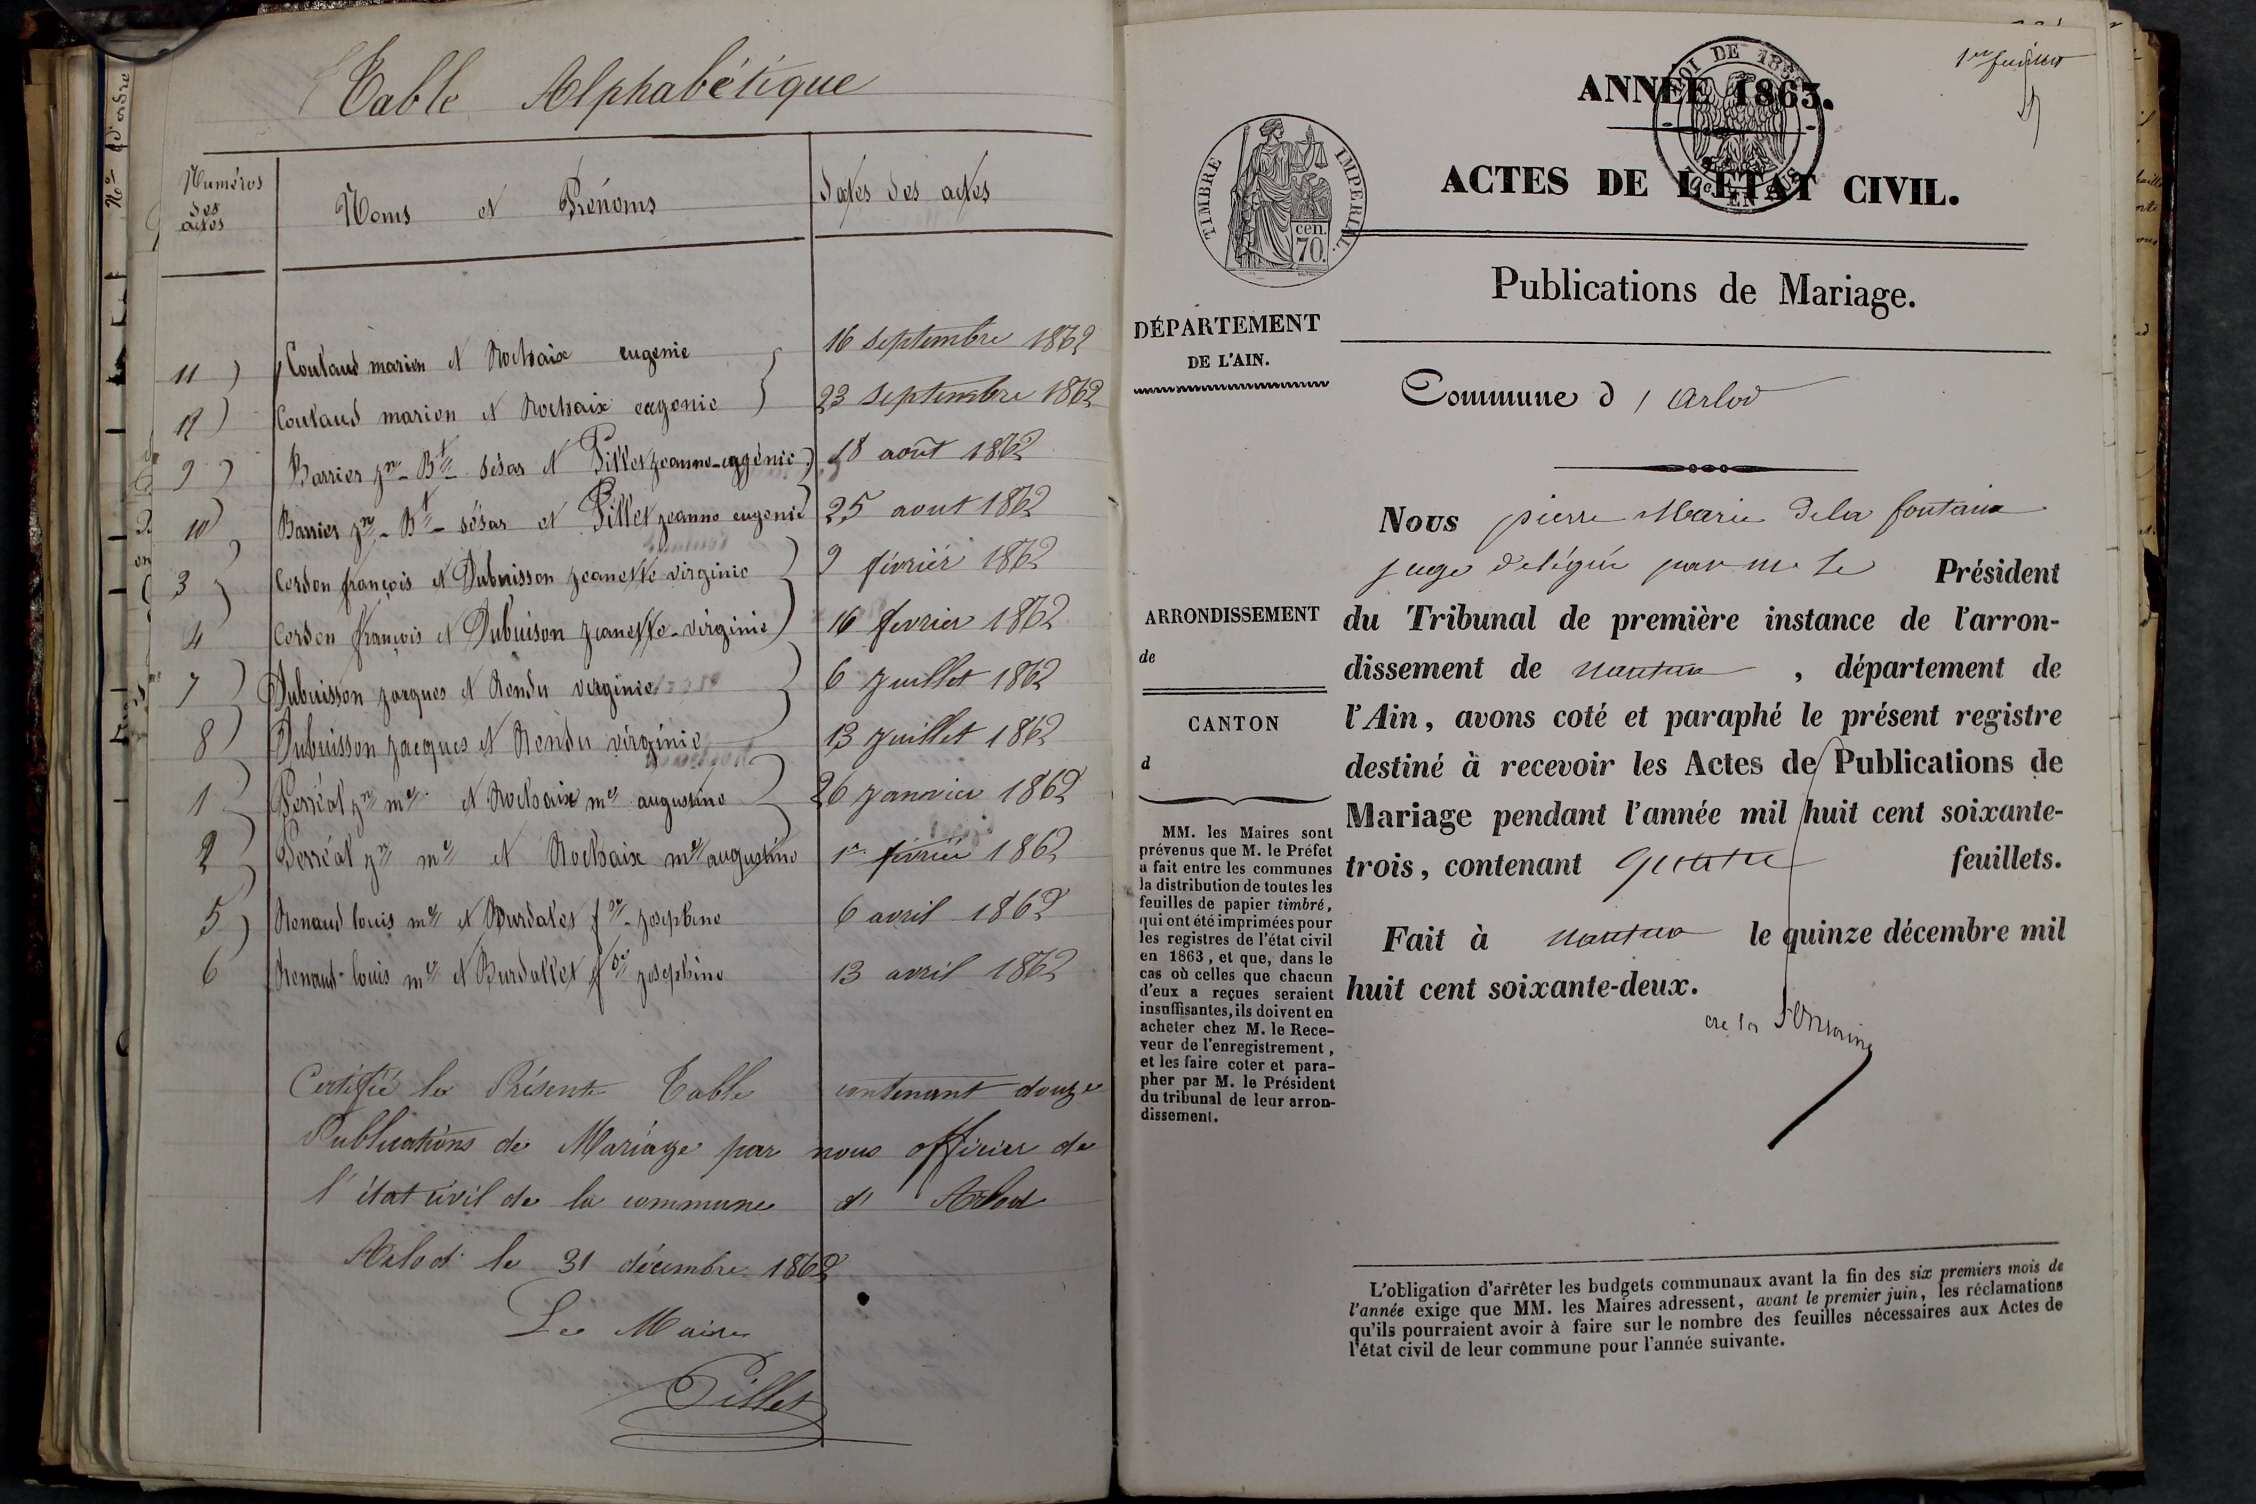 Table Alphabétique
Numéros des actes
Noms et Prénoms
Dates des actes
11 Coutaud marien et Rochaix eugenie 16 septembre 1862
12 Coutaud marien et Rochaix eugenie 23 septembre 1862
9 Barrier jn Bte sésar et Pillet jeanne-eugénie 18 août 1862
10 Barrier jn Bte sésar et Pillet jeanne eugenie 25 aout 1862
3 Cordon françois et Dubuisson jeanette virginie 9 février 1862
4 Cordon françois et Dubuison jeanette-virginie 16 fevrier 1862
7 Dubuisson jacques et Rendu virginie 6 juillet 1862
8 Dubuisson jacques et Rendu virginie 13 juillet 1862
1 Perréal jn me et Rochaix me augustine 26 janvier 1862
2 Perréal jn me et Rochaix me augustine 1er février 1862
5 Renaud louis me et Burdalet fse josephine 6 avril 1862
6 Renaud louis me et Burdallet fse josephine 13 avril 1862
Certifié la Présente Table contenant douze
Publications de Mariage par nous officier de
l'état civil de la commune d' Arlod
Arlod le 31 décembre 1862
Le Maire
Pillet
1er feuillet
ANNÉE 1863.
ACTES DE L'ÉTAT CIVIL.
TIMBRE IMPERIAL
70. cen.
Publications de Mariage.
DÉPARTEMENT
DE L'AIN.
Commune d' Arlod
Nous pierre Marie Dela fontaine
juge délégué par m. le Président
ARRONDISSEMENT
de
CANTON
d
du Tribunal de première instance de l'arron-
dissement de nantua, département de
l'Ain, avons coté et paraphé le présent registre
destiné à recevoir les Actes de Publications de
Mariage pendant l'année mil huit cent soixante-
trois, contenant quatre feuillets.
Fait à nantua le quinze décembre mil
huit cent soixante-deux.
MM. les Maires sont
prévenus que M. le Préfet
a fait entre les communes
la distribution de toutes les
feuilles de papier timbré,
qui ont été imprimées pour
les registres de l'état civil
en 1863, et que, dans le
cas où celles que chacun
d'eux a reçues seraient
insuffisantes, ils doivent en
acheter chez M. le Rece-
veur de l'enregistrement,
et les faire coter et para-
pher par M. le Président
du tribunal de leur arron-
dissement.
L'obligation d'arrêter les budgets communaux avant la fin des six premiers mois de
l'année exige que MM. les Maires adressent, avant le premier juin, les réclamations
qu'ils pourraient avoir à faire sur le nombre des feuilles nécessaires aux Actes de
l'état civil de leur commune pour l'année suivante.